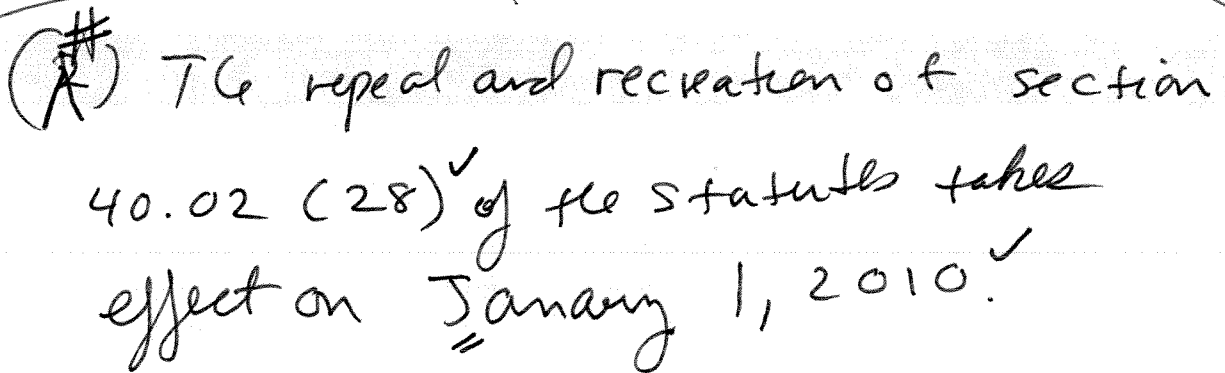 (#) The repeal and recreation of section
40.02 (28)✓ of the statutes takes
effect on January 1, 2010.✓